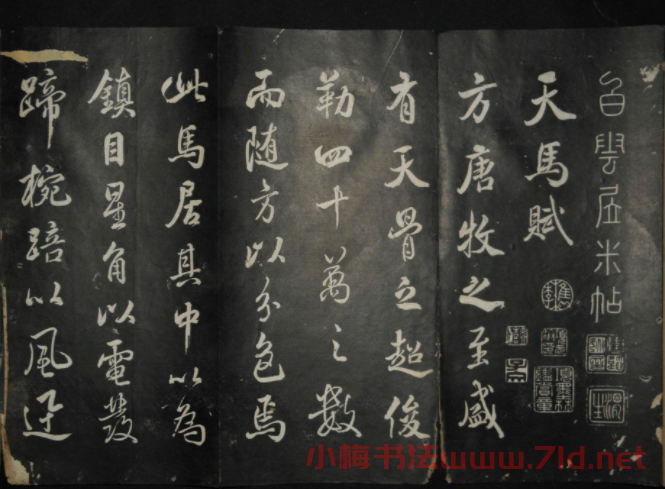 白雲居米帖
天馬賦
方唐牧之至盛
有天骨之超俊
勒四十萬之數
而随方以分色焉
此馬居其中以為
鎮目星角以電發
蹄椀踣以風迅
小梅书法www.7ld.net